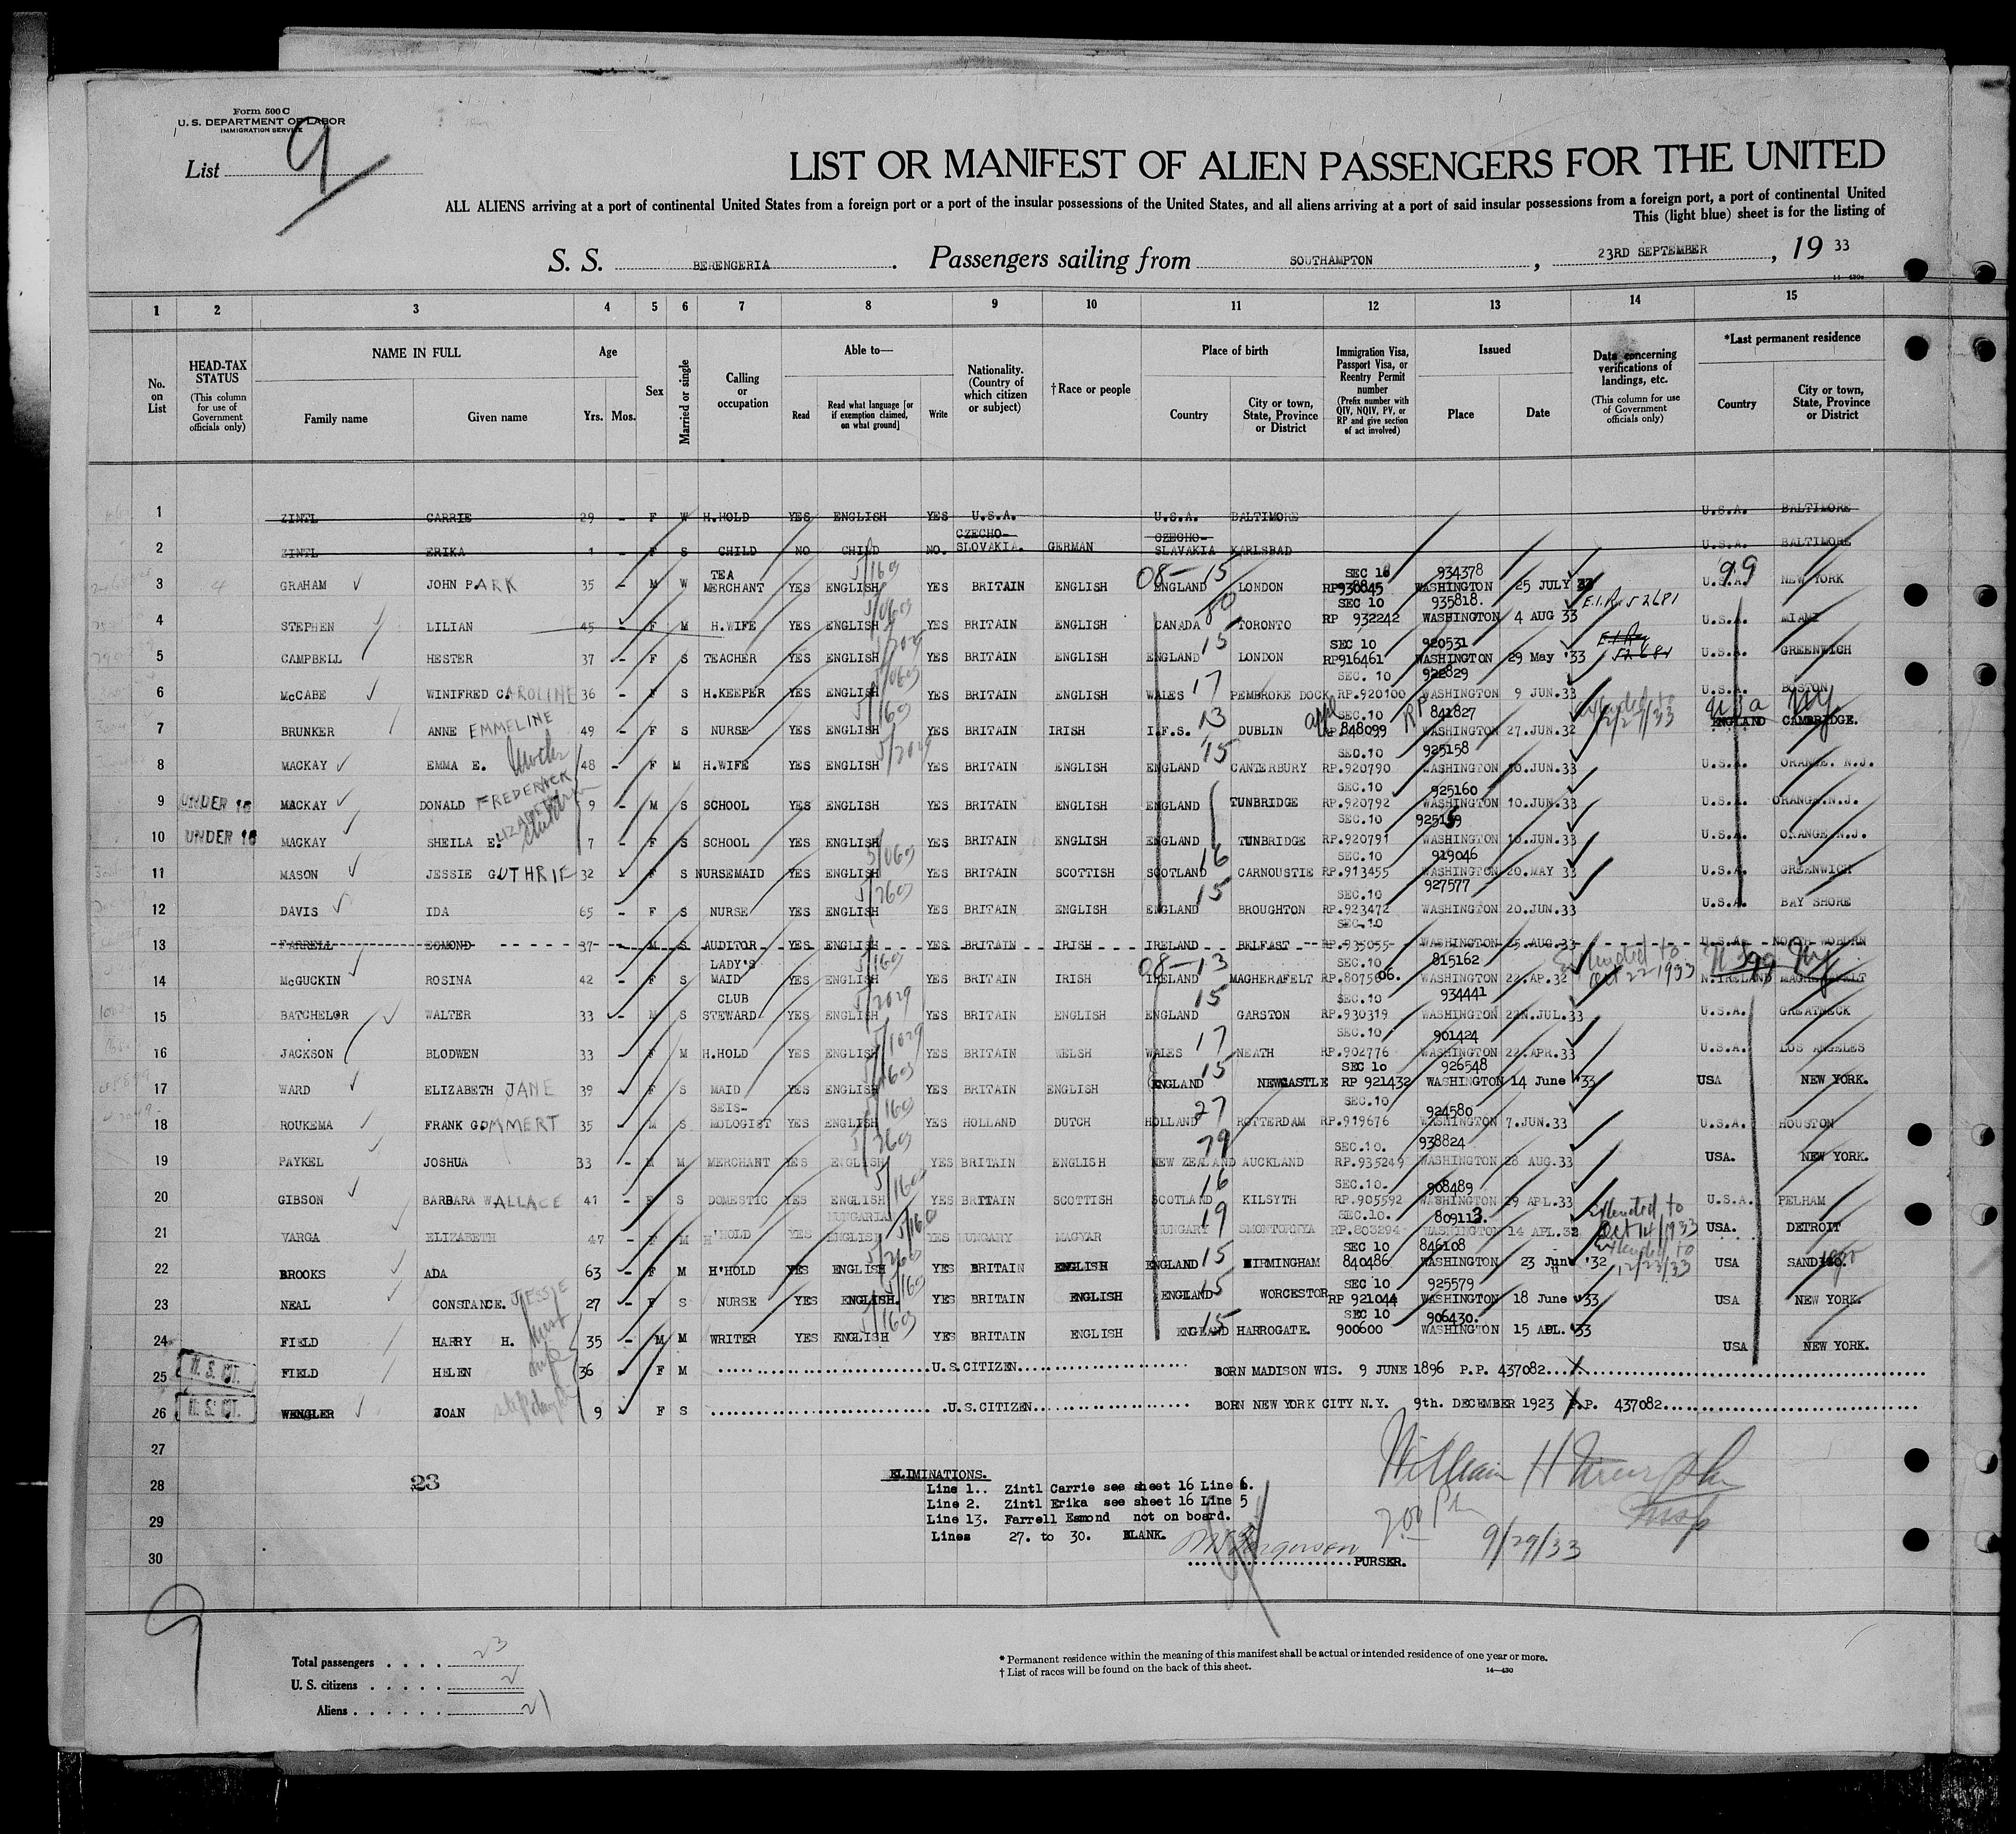 Form 500 C
U. S. DEPARTMENT OF LABOR
IMMIGRATION SERVICE
List 9
LIST OR MANIFEST OF ALIEN PASSENGERS FOR THE UNITED
ALL ALIENS arriving at a port of continental United States from a foreign port or a port of the insular possessions of the United States, and all aliens arriving at a port of said insular possessions from a foreign port, a port of continental United
This (light blue) sheet is for the listing of
S. S. BERENGERIA. Passengers sailing from SOUTHAMPTON, 23RD SEPTEMBER, 19 33
14—430a
1 2 3 4 5 6 7 8 9 10 11 12 13 14 15
No. on List
HEAD-TAX STATUS (This column for use of Government officials only)
NAME IN FULL Family name Given name
Age Yrs. Mos.
Sex
Married or single
Calling or occupation
Able to— Read Read what language [or if exemption claimed, on what ground] Write
Nationality. (Country of which citizen or subject)
†Race or people
Place of birth Country City or town, State, Province or District
Immigration Visa, Passport Visa, or Reentry Permit number (Prefix number with QIV, NQIV, PV, or RP and give section of act involved)
Issued Place Date
Data concerning verifications of landings, etc. (This column for use of Government officials only)
*Last permanent residence Country City or town, State, Province or District
1 ZINTL CARRIE 29 - F W H.HOLD YES ENGLISH YES U.S.A. U.S.A. BALTIMORE U.S.A. BALTIMORE
2 ZINTL ERIKA 1 - F S CHILD NO CHILD NO. CZECHO-SLOVAKIA. GERMAN CZECHO-SLAVAKIA KARLSBAD U.S.A. BALTIMORE
3 GRAHAM JOHN PARK 35 - M W TEA MERCHANT YES ENGLISH 5/1609 YES BRITAIN ENGLISH 08-15 ENGLAND LONDON SEC 10 RP930845 934378 WASHINGTON 25 JULY 33 99 U.S.A. NEW YORK
4 STEPHEN LILIAN 45 - F M H.WIFE YES ENGLISH YES BRITAIN ENGLISH 80 CANADA TORONTO SEC 10 RP 932242 935818. WASHINGTON 4 AUG 33 E.I.R. 52681 U.S.A. MIAMI
5 CAMPBELL HESTER 37 - F S TEACHER YES ENGLISH YES BRITAIN ENGLISH 15 ENGLAND LONDON SEC 10 RP916461 920531 WASHINGTON 29 May '33 52681 U.S.A. GREENWICH
6 McCABE WINIFRED CAROLINE 36 - F S H.KEEPER YES ENGLISH YES BRITAIN ENGLISH 17 WALES PEMBROKE DOCK SEC. 10 RP.920100 922829 WASHINGTON 9 JUN.33 U.S.A. BOSTON
7 BRUNKER ANNE EMMELINE 49 - F S NURSE YES ENGLISH 5/1609 YES BRITAIN IRISH 13 I.F.S. DUBLIN SEC.10 848099 RP 841827 WASHINGTON 27.JUN.32 extended to 12/27/33 ENGLAND CAMBRIDGE. USA NY
8 MACKAY EMMA E. Mother 48 - F M H.WIFE YES ENGLISH YES BRITAIN ENGLISH 15 ENGLAND CANTERBURY SEC.10 RP.920790 925158 WASHINGTON 10.JUN.33 U.S.A. ORANGE. N.J.
9 UNDER 16 MACKAY DONALD FREDERICK 9 - M S SCHOOL YES ENGLISH YES BRITAIN ENGLISH ENGLAND TUNBRIDGE SEC.10 RP.920792 925160 WASHINGTON 10.JUN.33 U.S.A. ORANGE.N.J.
10 UNDER 16 MACKAY SHEILA E. LIZABETH children 7 - F S SCHOOL YES ENGLISH YES BRITAIN ENGLISH ENGLAND TUNBRIDGE SEC.10 RP.920791 925159 WASHINGTON 10.JUN.33 U.S.A. ORANGE.N.J.
11 MASON JESSIE GUTHRIE 32 F S NURSEMAID YES ENGLISH YES BRITAIN SCOTTISH 16 SCOTLAND CARNOUSTIE SEC.10 RP.913455 919046 WASHINGTON 20.MAY 33 U.S.A. GREENWICH
12 DAVIS IDA 65 - F S NURSE YES ENGLISH YES BRITAIN ENGLISH 15 ENGLAND BROUGHTON SEC.10 RP.923472 927577 WASHINGTON 20.JUN.33 U.S.A. BAY SHORE
13 FARRELL EDMOND 37 - M S AUDITOR YES ENGLISH YES BRITAIN IRISH IRELAND BELFAST SEC.10 RP.935055 WASHINGTON 25.AUG.33 U.S.A. NORTH WOBURN
14 McGUCKIN ROSINA 42 - F S LADY'S MAID YES ENGLISH 5/1609 YES BRITAIN IRISH 08-13 IRELAND MAGHERAFELT SEC.10 RP.807506. 815162 WASHINGTON 22.AP.32 Extended to Oct 22 1933 N.IRELAND MAGHERAFELT 99 NY
15 BATCHELOR WALTER 33 - M S CLUB STEWARD YES ENGLISH 5/2029 YES BRITAIN ENGLISH 15 ENGLAND GARSTON SEC.10 RP.930319 934441 WASHINGTON 22N.JUL.33 U.S.A. GREATNECK
16 JACKSON BLODWEN 33 F M H.HOLD YES ENGLISH 5/1029 YES BRITAIN WELSH 17 WALES NEATH SEC.10 RP.902776 901424 WASHINGTON 22.APR.33 U.S.A. LOS ANGELES
17 WARD ELIZABETH JANE 39 F S MAID YES ENGLISH YES BRITAIN ENGLISH 15 ENGLAND NEWCASTLE SEC 10 RP 921432 926548 WASHINGTON 14 June '33 USA NEW YORK.
18 ROUKEMA FRANK GOMMERT 35 M S SEIS-MOLOGIST YES ENGLISH 5/1609 YES HOLLAND DUTCH 27 HOLLAND ROTTERDAM SEC.10 RP.919676 924580 WASHINGTON 7.JUN.33 U.S.A. HOUSTON
19 PAYKEL JOSHUA 33 - M M MERCHANT YES ENGLISH YES BRITAIN ENGLISH 79 NEW ZEALAND AUCKLAND SEC.10. RP.935249 938824 WASHINGTON 28 AUG.33 USA. NEW YORK.
20 GIBSON BARBARA WALLACE 41 - F S DOMESTIC YES ENGLISH 5/1609 YES BRITAIN SCOTTISH 16 SCOTLAND KILSYTH SEC.10. RP.905592 908489 WASHINGTON 29 APL.33 U.S.A. PELHAM
21 VARGA ELIZABETH 47 - F M H'HOLD YES HUNGARIAN ENGLISH YES HUNGARY MAGYAR 19 HUNGARY SMONTORNYA SEC.10. RP.803294 809113. WASHINGTON 14 APL.32 Extended to Oct 14/1933 USA. DETROIT
22 BROOKS ADA 63 - F M H'HOLD YES ENGLISH YES BRITAIN ENGLISH ENGLAND 15 BIRMINGHAM SEC 10 840486 846108 WASHINGTON 23 June '32 Extended to 12/23/33 USA SANDIEGO.
23 NEAL CONSTANCE. JESSIE 27 - F S NURSE YES ENGLISH. YES BRITAIN ENGLISH ENGLAND 15 WORCESTOR SEC 10 RP 921044 925579 WASHINGTON 18 June '33 USA NEW YORK.
24 FIELD HARRY H. 35 - M M WRITER YES ENGLISH 5/1609 YES BRITAIN ENGLISH 15 ENGLAND HARROGATE. SEC 10 900600 906430. WASHINGTON 15 APL. '33 USA NEW YORK.
25 U. S. CIT. FIELD HELEN wife 36 F M U.S.CITIZEN BORN MADISON WIS. 9 JUNE 1896 P.P. 437082
26 U. S. CIT. WENGLER JOAN step daughter 9 F S U.S.CITIZEN BORN NEW YORK CITY N.Y. 9th. DECEMBER 1923 P.P. 437082
27
28 23
29
30
ELIMINATIONS.
Line 1.. Zintl Carrie see sheet 16 Line 6.
Line 2. Zintl Erika see sheet 16 Line 5
Line 13. Farrell Esmond not on board.
Lines 27. to 30. BLANK.
PURSER.
William H
700 Pm
Insp
9/29/33
9
Total passengers 23
U. S. citizens 2
Aliens 21
* Permanent residence within the meaning of this manifest shall be actual or intended residence of one year or more.
† List of races will be found on the back of this sheet.
14—430